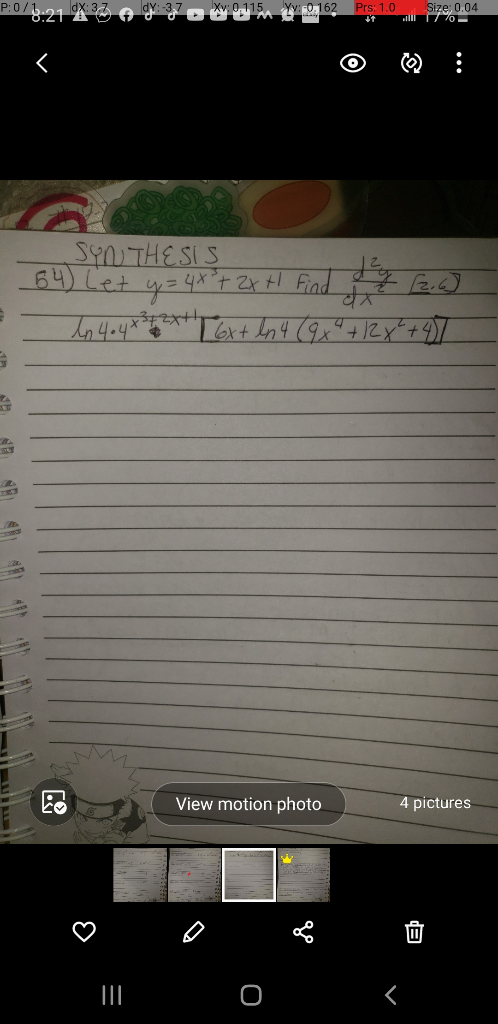 P: 0 / 1 dX: 3.7 dY: -3.7 Xv: 0.115 Yv: 0.162 Prs: 1.0 Size: 0.04
8:21 17%
SYNTHESIS
64) Let y = 4x³ + 2x + 1 Find d²y/dx² [2.6]
ln 4 • 4^x³+2x+1 [6x + ln 4 (9x⁴ + 12x² + 4)]
View motion photo
4 pictures